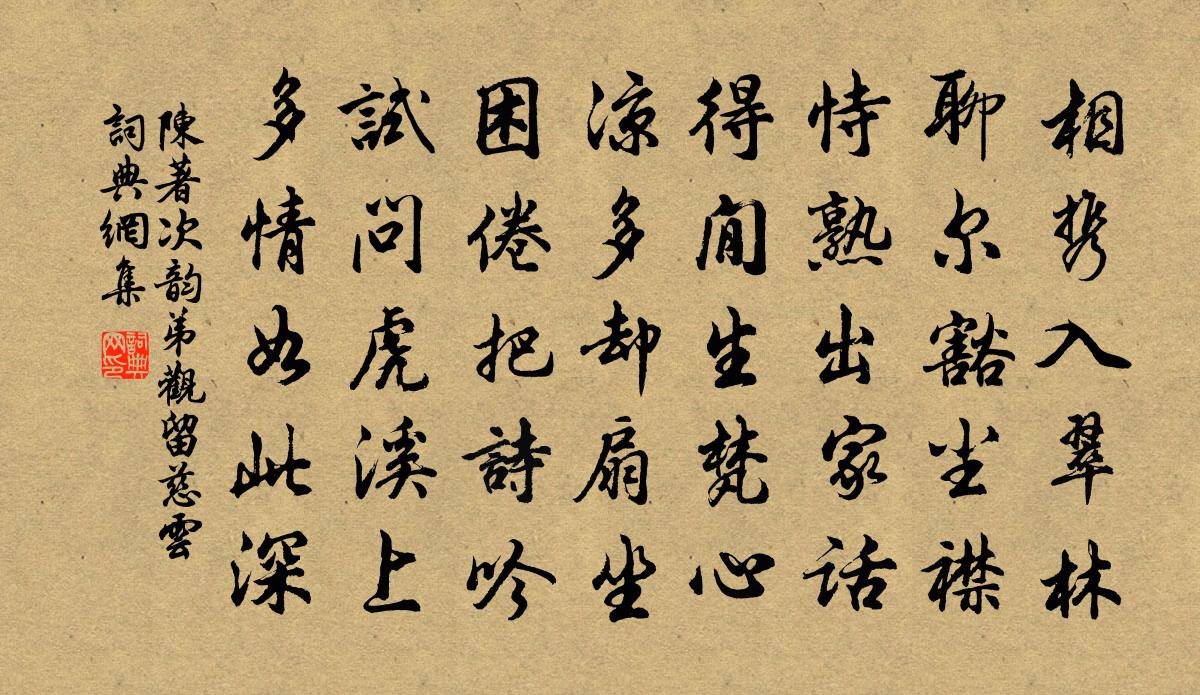 相携入翠林
聊尔豁尘襟
恃熟出家话
得閒生梵心
凉多却扇坐
困倦把詩吟
試问虎溪上
多情如此深
陳著次韵弟觀留慈雲
詞典網集
詞典
网印